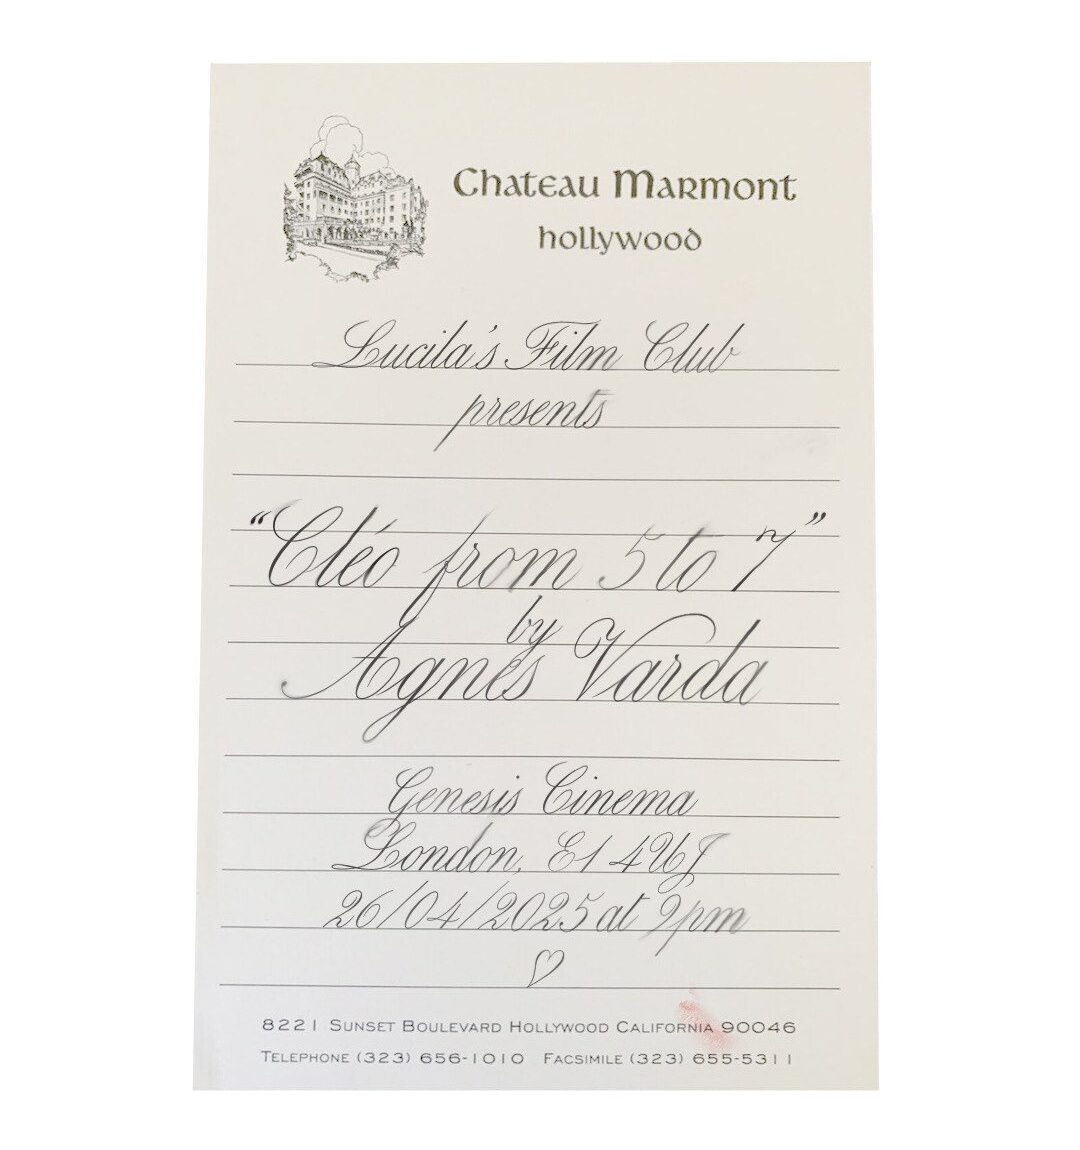 Chateau Marmont
hollywood
Lucila's Film Club
presents
"Cléo from 5 to 7"
by
Agnès Varda
Genesis Cinema
London, E1 4UJ
26/04/2025 at 9pm
8221 Sunset Boulevard Hollywood California 90046
Telephone (323) 656-1010 Facsimile (323) 655-5311